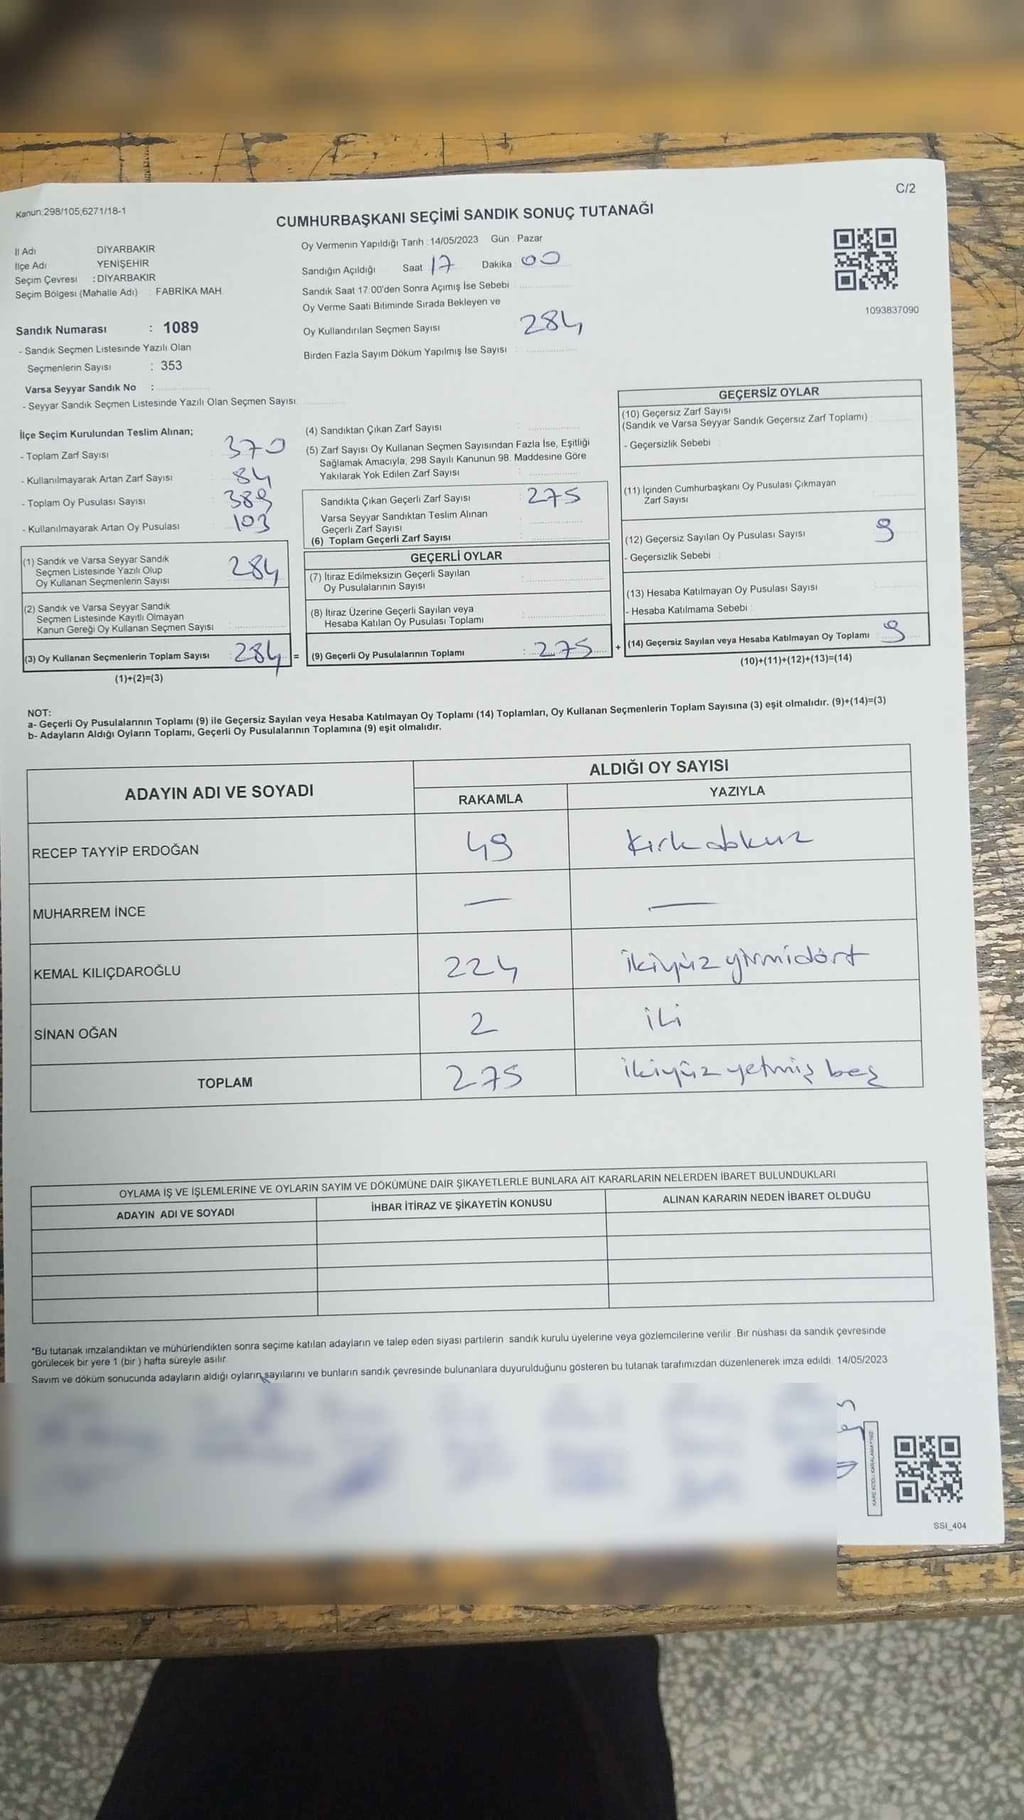 Kanun:298/105,6271/18-1
C/2
CUMHURBAŞKANI SEÇİMİ SANDIK SONUÇ TUTANAĞI
İl Adı DİYARBAKIR
İlçe Adı YENİŞEHİR
Seçim Çevresi : DİYARBAKIR
Seçim Bölgesi (Mahalle Adı) FABRİKA MAH
Oy Vermenin Yapıldığı Tarih : 14/05/2023 Gün : Pazar
Sandığın Açıldığı Saat 17 Dakika 00
Sandık Saat 17:00'den Sonra Açımış İse Sebebi
Oy Verme Saati Bitiminde Sırada Bekleyen ve
Oy Kullandırılan Seçmen Sayısı 284
Birden Fazla Sayım Döküm Yapılmış İse Sayısı
1093837090
Sandık Numarası : 1089
- Sandık Seçmen Listesinde Yazılı Olan
Seçmenlerin Sayısı : 353
Varsa Seyyar Sandık No :
- Seyyar Sandık Seçmen Listesinde Yazılı Olan Seçmen Sayısı
İlçe Seçim Kurulundan Teslim Alınan;
- Toplam Zarf Sayısı 370
- Kullanılmayarak Artan Zarf Sayısı 84
- Toplam Oy Pusulası Sayısı 389
- Kullanılmayarak Artan Oy Pusulası 103
(1) Sandık ve Varsa Seyyar Sandık
Seçmen Listesinde Yazılı Olup
Oy Kullanan Seçmenlerin Sayısı 284
(2) Sandık ve Varsa Seyyar Sandık
Seçmen Listesinde Kayıtlı Olmayan
Kanun Gereği Oy Kullanan Seçmen Sayısı
(3) Oy Kullanan Seçmenlerin Toplam Sayısı 284 =
(1)+(2)=(3)
(4) Sandıktan Çıkan Zarf Sayısı
(5) Zarf Sayısı Oy Kullanan Seçmen Sayısından Fazla İse, Eşitliği
Sağlamak Amacıyla, 298 Sayılı Kanunun 98. Maddesine Göre
Yakılarak Yok Edilen Zarf Sayısı
Sandıkta Çıkan Geçerli Zarf Sayısı 275
Varsa Seyyar Sandıktan Teslim Alınan
Geçerli Zarf Sayısı
(6) Toplam Geçerli Zarf Sayısı
GEÇERLİ OYLAR
(7) İtiraz Edilmeksizin Geçerli Sayılan
Oy Pusulalarının Sayısı
(8) İtiraz Üzerine Geçerli Sayılan veya
Hesaba Katılan Oy Pusulası Toplamı
(9) Geçerli Oy Pusulalarının Toplamı : 275 +
GEÇERSİZ OYLAR
(10) Geçersiz Zarf Sayısı
(Sandık ve Varsa Seyyar Sandık Geçersiz Zarf Toplamı)
- Geçersizlik Sebebi
(11) İçinden Cumhurbaşkanı Oy Pusulası Çıkmayan
Zarf Sayısı
(12) Geçersiz Sayılan Oy Pusulası Sayısı 9
- Geçersizlik Sebebi
(13) Hesaba Katılmayan Oy Pusulası Sayısı
- Hesaba Katılmama Sebebi
(14) Geçersiz Sayılan veya Hesaba Katılmayan Oy Toplamı 9
(10)+(11)+(12)+(13)=(14)
NOT:
a- Geçerli Oy Pusulalarının Toplamı (9) ile Geçersiz Sayılan veya Hesaba Katılmayan Oy Toplamı (14) Toplamları, Oy Kullanan Seçmenlerin Toplam Sayısına (3) eşit olmalıdır. (9)+(14)=(3)
b- Adayların Aldığı Oyların Toplamı, Geçerli Oy Pusulalarının Toplamına (9) eşit olmalıdır.
ADAYIN ADI VE SOYADI
ALDIĞI OY SAYISI
RAKAMLA YAZIYLA
RECEP TAYYİP ERDOĞAN 49 Kırkdokuz
MUHARREM İNCE — —
KEMAL KILIÇDAROĞLU 224 ikiyüzyirmidört
SİNAN OĞAN 2 iki
TOPLAM 275 ikiyüzyetmiş beş
OYLAMA İŞ VE İŞLEMLERİNE VE OYLARIN SAYIM VE DÖKÜMÜNE DAİR ŞİKAYETLERLE BUNLARA AİT KARARLARIN NELERDEN İBARET BULUNDUKLARI
ADAYIN ADI VE SOYADI İHBAR İTİRAZ VE ŞİKAYETİN KONUSU ALINAN KARARIN NEDEN İBARET OLDUĞU
*Bu tutanak imzalandıktan ve mühürlendikten sonra seçime katılan adayların ve talep eden siyasi partilerin sandık kurulu üyelerine veya gözlemcilerine verilir. Bir nüshası da sandık çevresinde
görülecek bir yere 1 (bir ) hafta süreyle asılır.
Sayım ve döküm sonucunda adayların aldığı oyların sayılarını ve bunların sandık çevresinde bulunanlara duyurulduğunu gösteren bu tutanak tarafımızdan düzenlenerek imza edildi. 14/05/2023
SSI_404